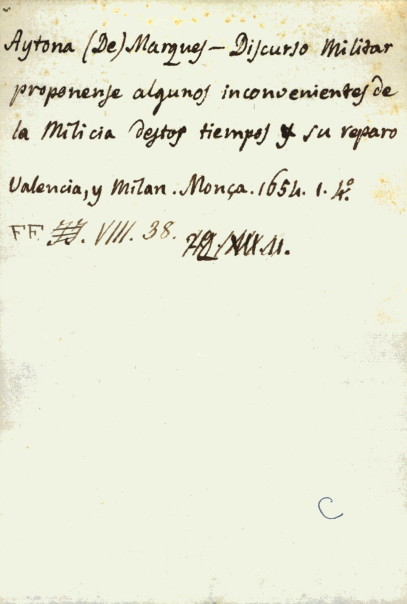 Aytona (De) Marques — Discurso Militar
proponense algunos inconvenientes de
la Milicia destos tiempos y su reparo
Valencia, y Milan. Monça. 1654. 1. 4º
FF. VIII. 38.
C